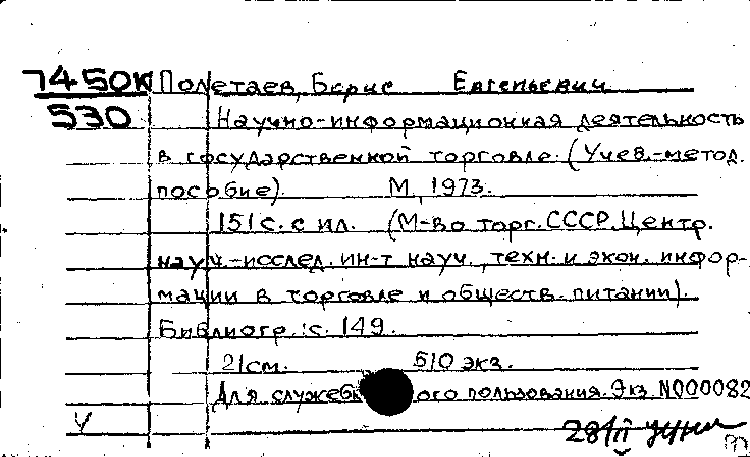 7450К Полетаев, Борис Евгеньевич
530 Научно-информационная деятельность
в государственной торговле. (Учеб.-метод.
пособие). М, 1973.
151с. с ил. (М-во торг. СССР. Центр.
науч.-исслед. ин-т науч., техн. и экон. инфор-
мации в торговле и обществ. питании).
Библиогр.: с. 149.
21см. 510 экз.
Для служеб ого пользования. Экз. N000082
У 28/II